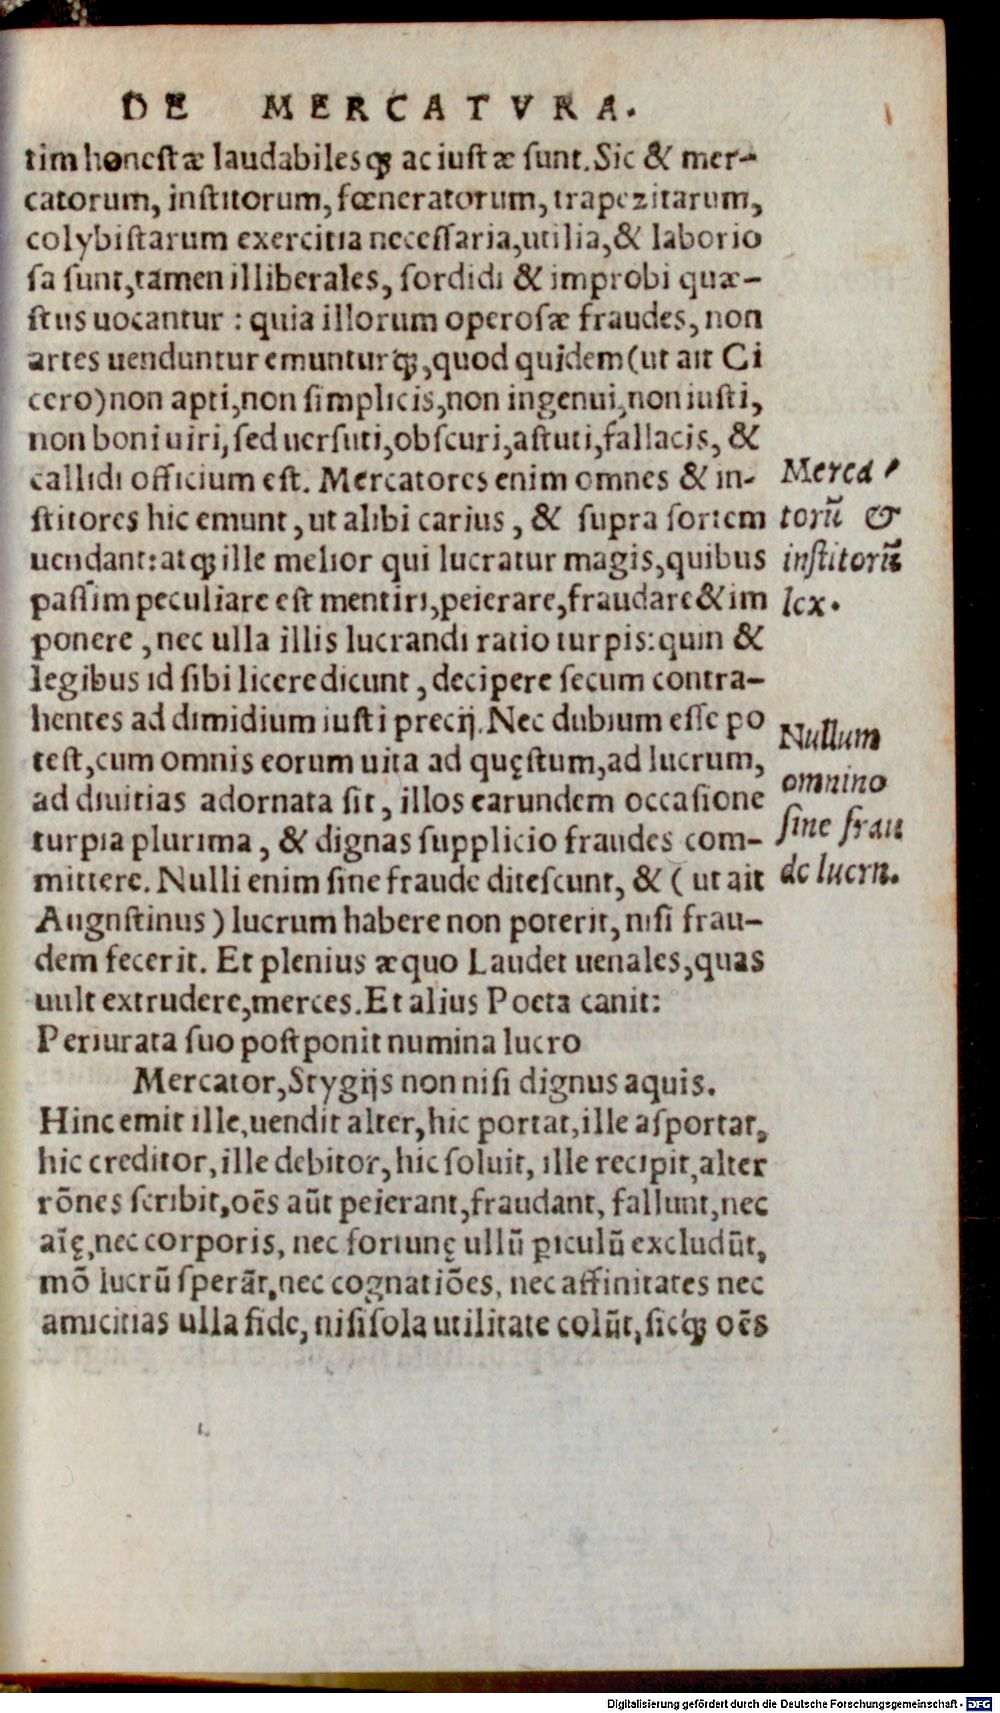 DE MERCATVRA.
tim honestæ laudabilesq́; ac iustæ sunt. Sic & mer-
catorum, institorum, fœneratorum, trapezitarum,
colybistarum exercitia necessaria, utilia, & laborio
sa sunt, tamen illiberales, sordidi & improbi quæ-
stus uocantur : quia illorum operosæ fraudes, non
artes uenduntur emunturq́;, quod quidem (ut ait Ci
cero) non apti, non simplicis, non ingenui, non iusti,
non boni uiri, sed uersuti, obscuri, astuti, fallacis, &
callidi officium est. Mercatores enim omnes & in-
stitores hic emunt, ut alibi carius, & supra sortem
uendant: atq; ille melior qui lucratur magis, quibus
passim peculiare est mentiri, peierare, fraudare & im
ponere, nec ulla illis lucrandi ratio turpis: quin &
legibus id sibi licere dicunt, decipere secum contra-
hentes ad dimidium iusti precij. Nec dubium esse po
test, cum omnis eorum uita ad quęstum, ad lucrum,
ad diuitias adornata sit, illos earundem occasione
turpia plurima, & dignas supplicio fraudes com-
mittere. Nulli enim sine fraude ditescunt, & ( ut ait
Augnstinus ) lucrum habere non poterit, nisi frau-
dem fecerit. Et plenius æquo Laudet uenales, quas
uult extrudere, merces. Et alius Poeta canit:
Periurata suo postponit numina lucro
Mercator, Stygijs non nisi dignus aquis.
Hinc emit ille, uendit alter, hic portat, ille asportat,
hic creditor, ille debitor, hic soluit, ille recipit, alter
rōnes scribit, oēs aūt peierant, fraudant, fallunt, nec
aīę, nec corporis, nec fortunę ullū ꝑiculū excludūt,
mō lucrū sperāt, nec cognatiōes, nec affinitates nec
amicitias ulla fide, nisi sola utilitate colūt, sicq́; oēs
Merca
torū &
institorū
lex.
Nullum
omnino
sine frau
de lucrn.
Digitalisierung gefördert durch die Deutsche Forschungsgemeinschaft - DFG